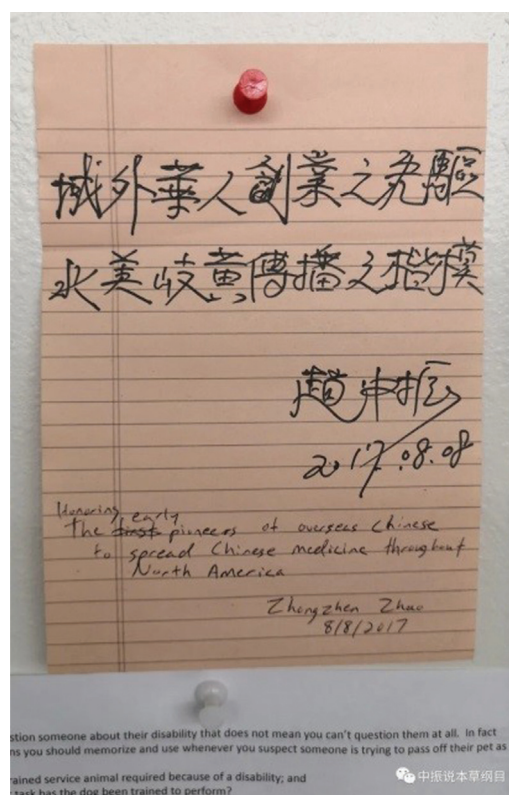 域外華人創業之先驅
北美岐黄傳播之楷模
趙中振
2017.08.08
Honoring early
The first pioneers of overseas Chinese
to spread Chinese medicine throughout
North America
Zhongzhen Zhao
8/8/2017
stion someone about their disability that does not mean you can't question them at all. In fact
ns you should memorize and use whenever you suspect someone is trying to pass off their pet as
rained service animal required because of a disability; and
task has the dog been trained to perform?
中振说本草纲目